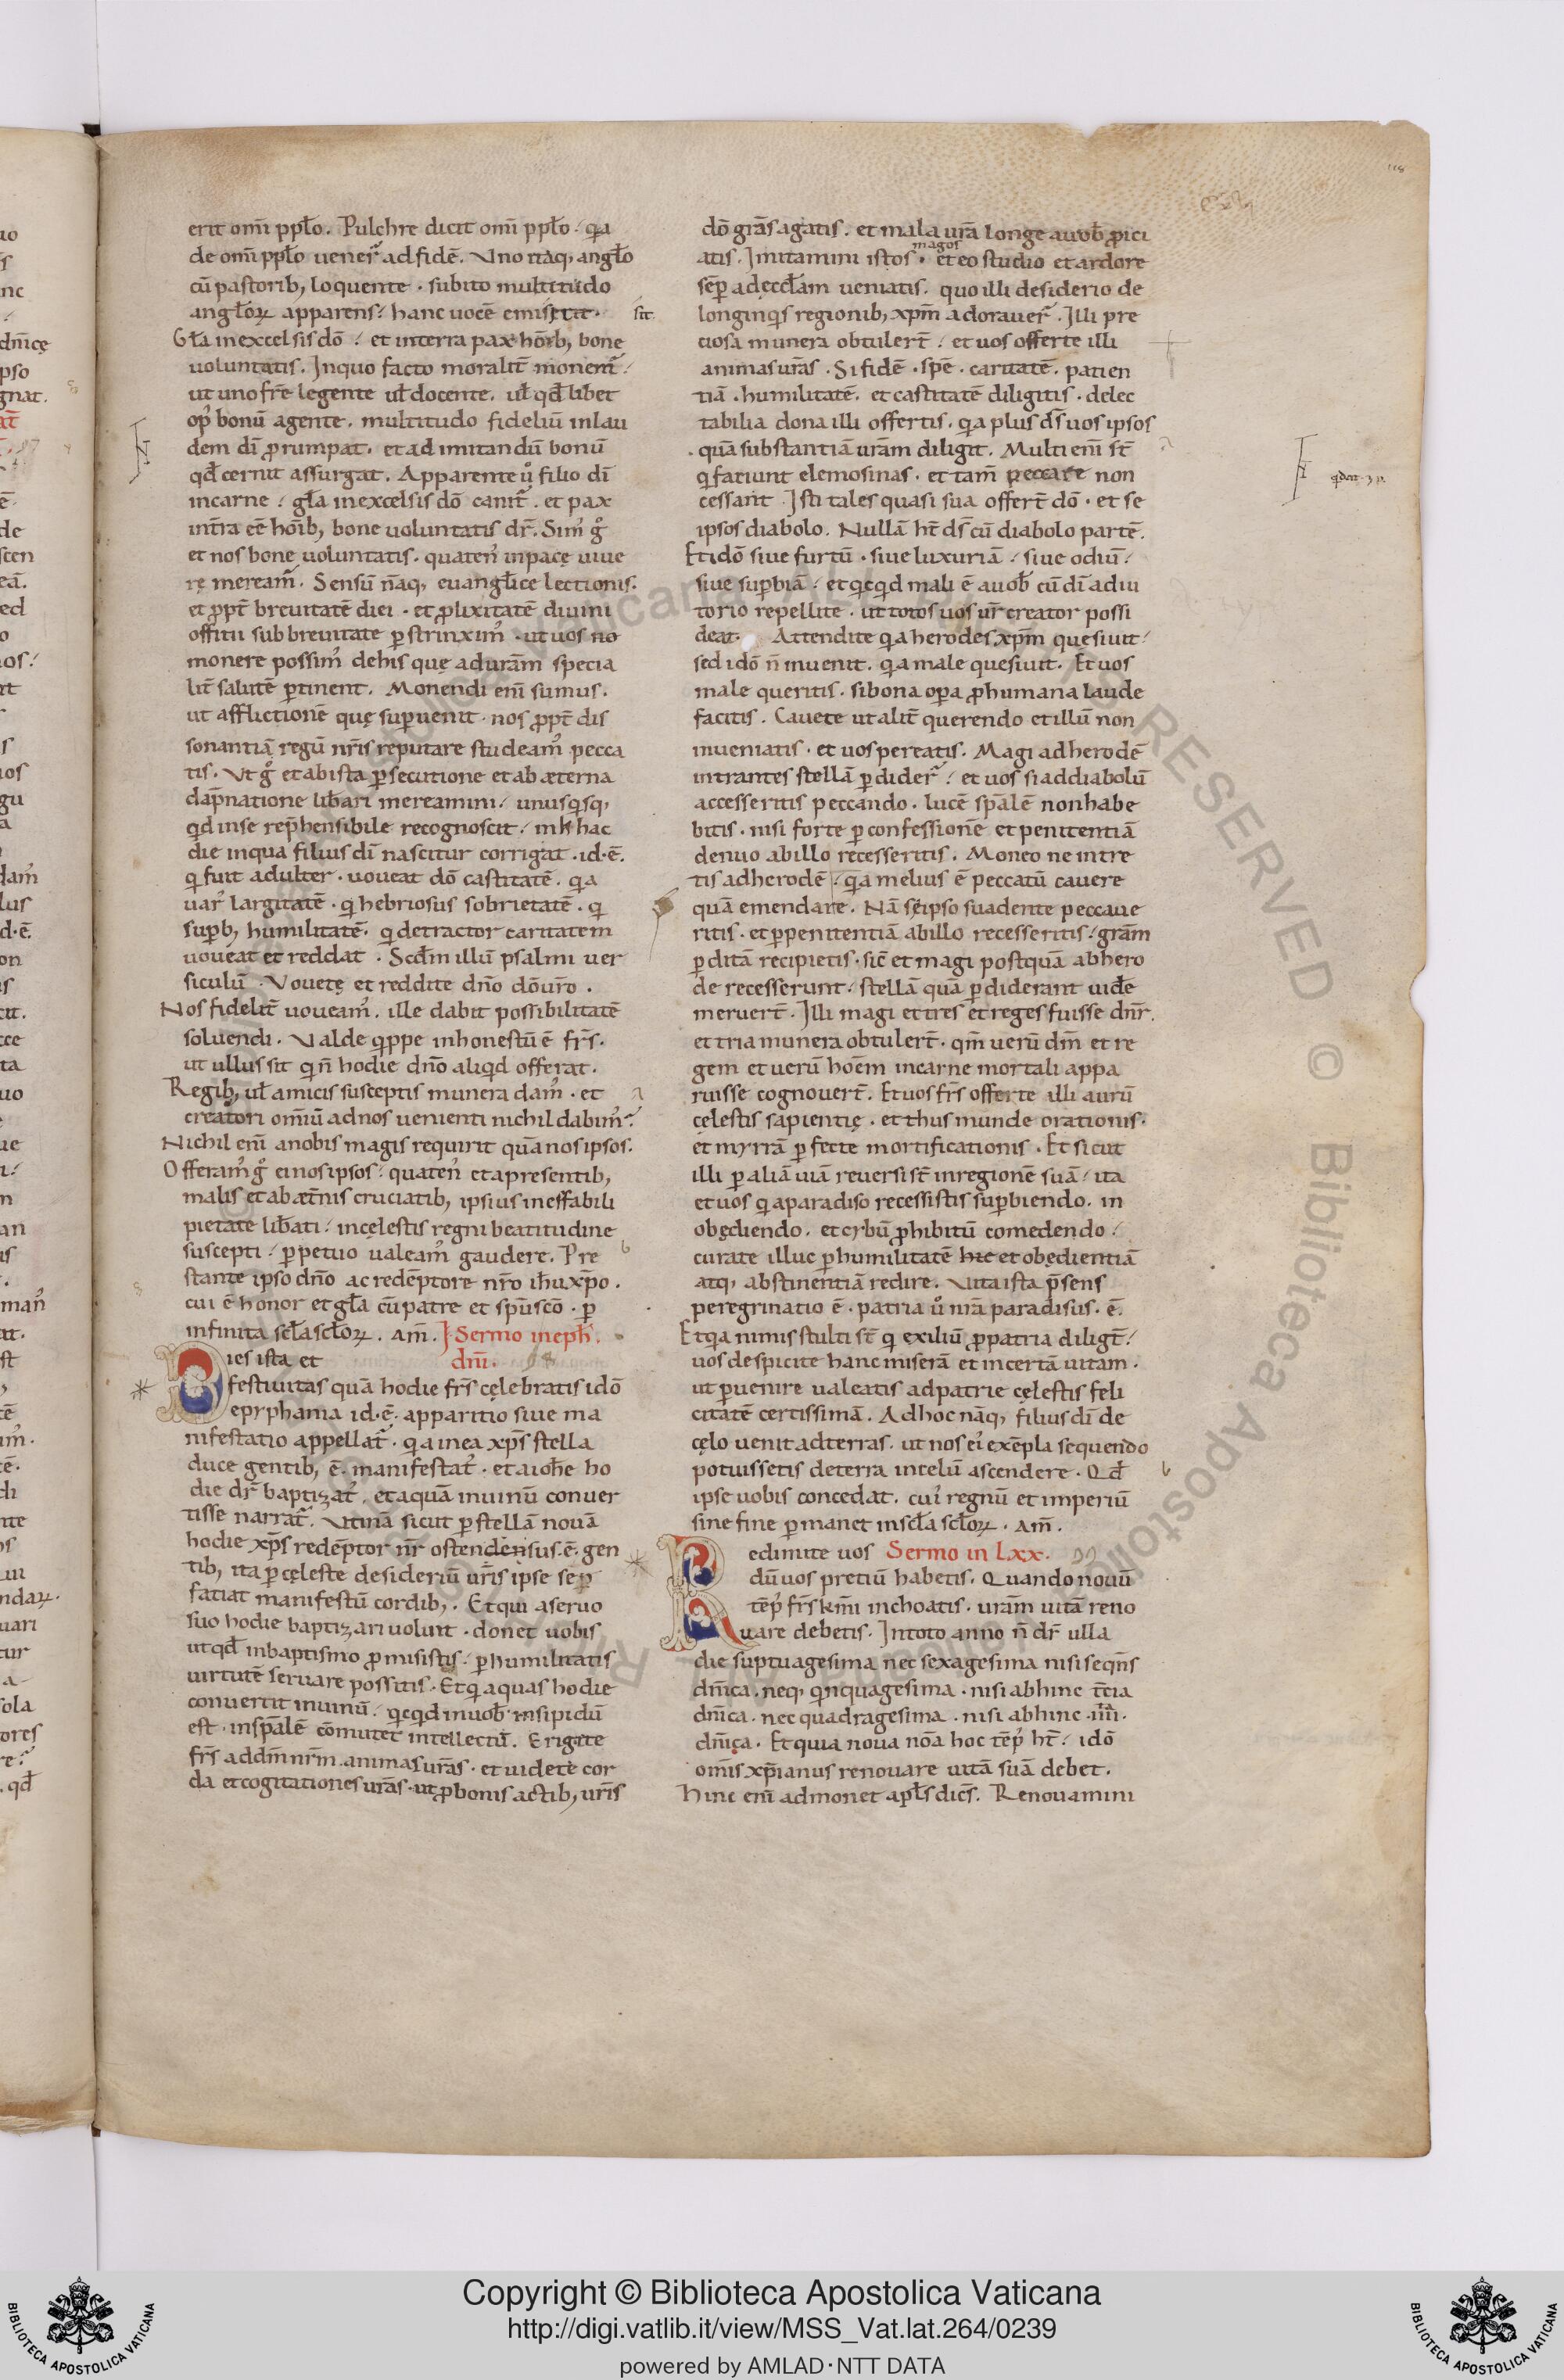 erit om̄i ppl̄o. Pulchre dicit om̄i ppl̄o. q̇a
de om̄i ppl̄o uener̄ ad fidē. Vno itaq; angl̄o
cū pastorib; loquente. subito multitudo
angl̄oꝝ apparens: hanc uocē emiserit. sit
Gl̄a in excelsis dō: et in terra pax hōib; bonę
uoluntatis. In quo facto moralit̄ monem̄:
ut uno fr̄e legente ul̄ docente. ul̄ qđ libet
op᾽ bonū agente. multitudo fideliū in lau
dem dī ꝓrumpat. et ad imitandū bonū
qđ cernit assurgat. Apparente ů filio dī
in carne: gl̄a in excelsis dō canit̄. et pax
in t̄ra eē hōib; bone uoluntatis dr̄. Sim᾽ g̊
et nos bone uoluntatis. quaten᾽ in pacę uiue
rę meream̄. Sensū n̄aq; euangl̄ice lectionis.
et ꝓpt̄ breuitatē diei. et ꝓlixitatē diuini
offitii sub breuitate ꝑstrinxim᾽. ut uos no
monere possim᾽ de his quę ad urām specia
lit̄ salutē ꝑtinent. Monendi eni᷄ sumus.
ut afflictionē quę suꝑuenit. nos ꝓpt̄ dis
sonantiā regū nr̄is reputare studeam᾽ pecca
tis. Vt g̊ et ab ista ꝑsecutione et ab æterna
dāpnatione lib̄ari mereamini: unusq̇sq;
qđ in se rep̄hensibile recognoscit: in hac
die in qua filius dī nascitur corrigat. id. ē.
q̇ fuit adulter. uoueat dō castitatē. q̇ a
uar᾽ largitatē. q̇ hebriosus sobrietatē. q̇
suꝑb; humilitatē. q̇ detractor caritatem
uoueat et reddat. Scđm illū psalmi uer
siculū. Vouetę et reddite dn̄o dō ur̄o.
Nos fidelit̄ uoueam᾽. ille dabit possibilitatē
soluendi. Valde q̇ppe inhonestū ē fr̄s.
ut ullus sit q̇ n̄ hodie dn̄o aliq̇d offerat.
Regib; ul̄ amicis susceptis munera dam᾽. et
creatori om̄iū ad nos uenienti nichil dabim᾽?
Nichil eni᷄ a nobis magis requirit quā nos ipsos.
Offeram᾽ g̊ ei nos ipsos: quaten᾽ et a presentib;
malis et ab æt̄nis cruciatib; ipsius ineffabili
pietate lib̄ati: in cęlestis regni beatitudine
suscepti: ꝑpetuo ualeam᾽ gaudere. Pre
stante ipso dn̄o ac redēptore nr̄o ih̄u xp̄o.
cui ē honor et gl̄a cū patre et sp̄u scō. ꝑ
infinita scl̄a scl̄oꝝ. Am̄. Sermo in eph̄.
Dies ista et dn̄i. 98
festiuitas quā hodie fr̄s cęlebratis idō
epyphania id. ē. apparitio siue ma
nifestatio appellat̄. q̇a in ea xp̄s stella
duce gentib; ē. manifestat᾽. et a ioh̄e ho
die dr̄ baptizat᾽. et aquā in uinū conuer
tisse narrat̄. Vtinā sicut ꝑ stellā nouā
hodie xp̄s redēptor nr̄ ostensus. ē. gen
tib; ita ꝑ cęleste desideriū ur̄is ipse sep̄
fatiat manifestū cordib;. Et qui a seruo
suo hodie baptizari uoluit. donet uobis
ut qđ in baptismo ꝓmisistis. ꝑ humilitatis
uirtutē seruare possitis. Et q̇ aquas hodie
conuertit in uinū. q̇cq̇d in uob̄ insipidū
est. in sp̄alē cōmutet intellectū. Erigite
fr̄s ad dm̄ nr̄m animas urās. et uidete cor
da et cogitationes urās. ut ꝓ bonis actib; ur̄is
dō grās agatis. et mala urā longe a uob̄ ꝓici
magos
atis. Imitamini istos. et eo studio et ardore
sēp ad eccl̄am ueniatis. quo illi desiderio de
longinq̇s regionib; xp̄m adorauer̄. Illi pre
ciosa munera obtulert̄: et uos offerte illi
animas urās. Si fidē. spē. caritatē. patien
tiā. humilitatē. et castitatē diligitis. delec
tabilia dona illi offertis. q̇a plus ds̄ uos ipsos
quā substantiā urām diligit. Multi eni᷄ st̄
q̇ fatiunt elemosinas. et tam̄ peccare non
cessant. Isti tales quasi sua offert̄ dō. et se
ipsos diabolo. Nullā ht̄ ds̄ cū diabolo partē.
Et idō siue furtū. siue luxuriā: siue odiū:
siue suꝑbiā: et q̇cq̇d mali ē a uob̄ cū dī adiu
torio repellite. ut totos uos ur̄ creator possi
deat. Attendite q̇a herodes xp̄m quęsiuit:
sed idō n̄ inuenit. q̇a male quesiuit. Et uos
male queritis. si bona oꝑa ꝓ humana laude
facitis. Cauete ut alit̄ querendo et illū non
inueniatis. et uos pereatis. Magi ad herodē
intrantes stellā ꝑdider̄: et uos si ad diabolū
accesseritis peccando. lucē sp̄alē non habe
bitis. nisi forte ꝑ confessionē et penitentiā
denuo ab illo recesseritis. Moneo ne intre
tis ad herodē: q̇a melius ē peccatū cauere
quā emendare. Nā sęipso suadente peccaue
ritis. et ꝑ penitentiā ab illo recesseritis: grām
ꝑditā recipietis. sic̄ et magi postquā ab hero
de recesserunt: stellā quā ꝑdiderant uide
meruert̄. Illi magi et tres et reges fuisse dnr̄.
et tria munera obtulert̄. qm̄ uerū dm̄ et re
gem et uerū hoēm in carne mortali appa
ruisse cognouert̄. Et uos fr̄s offerte illi aurū
cęlestis sapientię. et thus munde orationis.
et myrrā ꝑfecte mortificationis. Et sicut
illi ꝑ aliā uiā reuersi st̄ in regionē suā: ita
et uos q̇ a paradiso recessistis suꝑbiendo. in
obędiendo. et cybū ꝓhibitū comedendo:
curate illuc ꝑ humilitatē hic et obędientiā
atq; abstinentiā redire. Vita ista p̄sens
peregrinatio ē. patria ů nr̄a paradisus. ē.
Et q̇a nimis stulti st̄ q̇ exiliū ꝓ patria diligt̄:
uos despicite hanc miserā et incertā uitam.
ut ꝑuenire ualeatis ad patrie cęlestis feli
citatē certissimā. Ad hoc nāq; filius dī de
cęlo uenit ad terras. ut nos ei᾽ exēpla sequendo
potuissetis de terra in celū ascendere. Qđ
ipse uobis concedat. cui᾽ regnū et imperiū
sine fine ꝑmanet in scl̄a scl̄oꝝ. Am̄.
Redimite uos Sermo in Lxx. 99
dū uos pretiū habetis. Quando nouū
tēp᾽ fr̄s km̄i inchoatis. urām uitā reno
uare debetis. In toto anno n̄ dr̄ ulla
die suptuagesima nec sexagesima nisi seqn̄s
dn̄ica. neq; q̇nquagesima. nisi abhinc t̄cia
dn̄ica. nec quadragesima. nisi abhinc .iiii.
dn̄ica. Et quia noua nōa hoc tēp᾽ ht̄: idō
om̄is xp̄ianus renouare uitā suā debet.
Hinc eni᷄ admonet apl̄s dic̄s. Renouamini
Copyright © Biblioteca Apostolica Vaticana
http://digi.vatlib.it/view/MSS_Vat.lat.264/0239
powered by AMLAD·NTT DATA